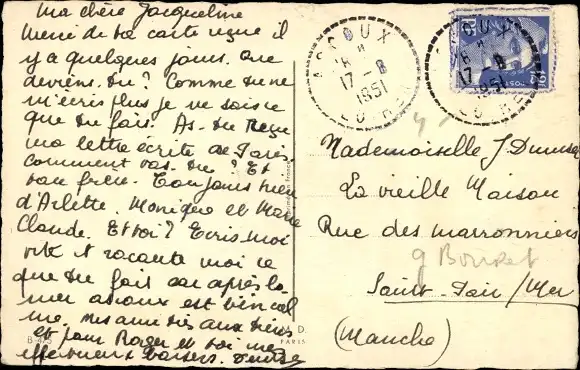 Ma chère Jacqueline
Merci de ta carte reçue il
y a quelques jours. Que
deviens-tu? Comme tu ne
m'écris plus je ne sais ce
que tu fais. As-tu reçu
ma lettre écrite de Paris.
Comment vas-tu? Et
ton frère. Toujours rien
d'Arlette, Monique et Marie
Claude. Et toi? Ecris moi
vite et raconte moi ce
que tu fais car après la
mer est bien cal
me. Mes amitiés aux tiens
et pour Roger et toi mes
affectueux baisers.
ARDOUX
17-8
1951
LOIRET
ARDOUX
17-8
1951
LOIRET
12F
POSTES
Mademoiselle J.
La vieille Maison
Rue des marronniers
Saint-Pair / Mer
(Manche)
M. D.
PARIS